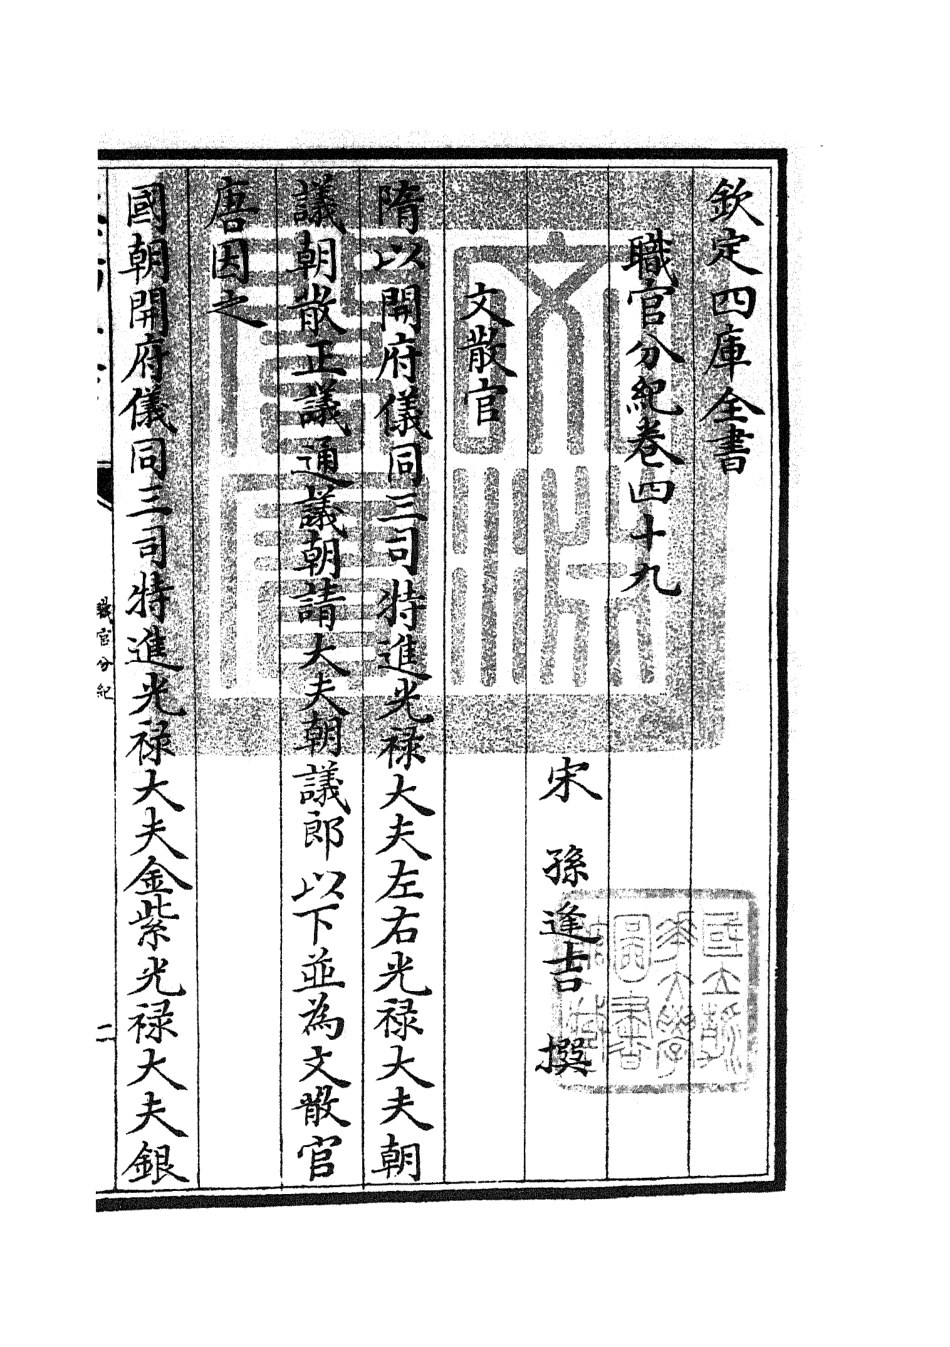 欽定四庫全書
職官分紀卷四十九
宋 孫逢吉 撰
文散官
隋以開府儀同三司特進光禄大夫左右光禄大夫朝
議朝散正議通議朝請大夫朝議郎以下並為文散官
唐因之
國朝開府儀同三司特進光禄大夫金紫光禄大夫銀
職官分紀
二